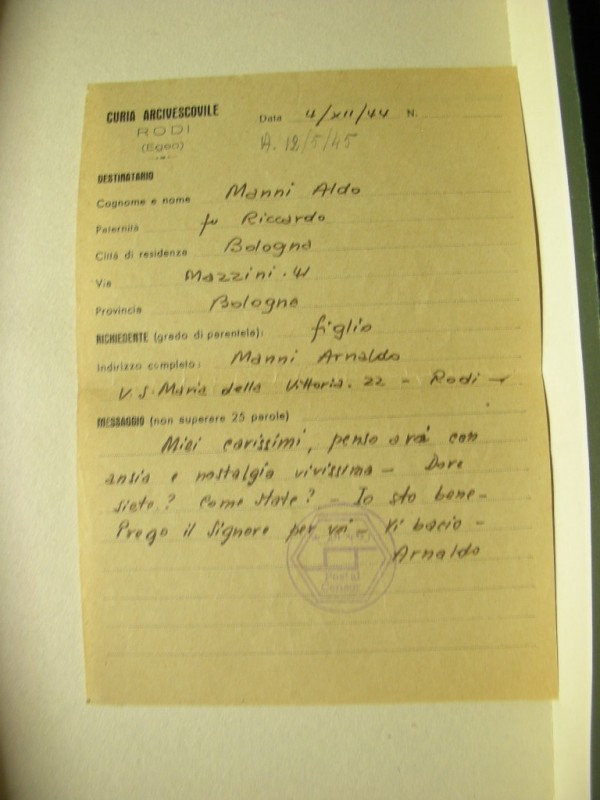 CURIA ARCIVESCOVILE
RODI
(Egeo)
Data 4/XII/44 N.
A. 12/5/45
DESTINATARIO
Cognome e nome Manni Aldo
Paternità fu Riccardo
Città di residenza Bologna
Via Mazzini. 41
Provincia Bologna
RICHIEDENTE (grado di parentela): figlio
Indirizzo completo: Manni Arnaldo
V. S. Maria della Vittoria. 22 - Rodi -
MESSAGGIO (non superare 25 parole)
Miei carissimi, penso a voi con
ansia e nostalgia vivissima - Dove
siete? Come state? - Io sto bene -
Prego il Signore per voi - Vi bacio -
Arnaldo
Postal
Censor